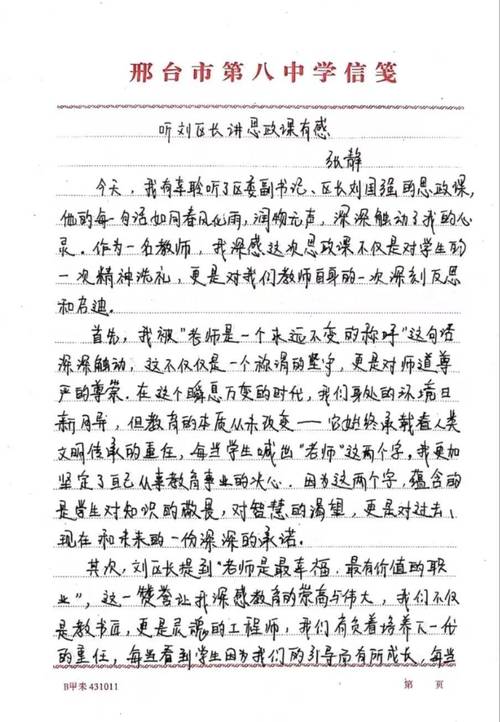 邢台市第八中学信笺
听刘区长讲思政课有感
张静
今天，我有幸聆听了区委副书记、区长刘国强的思政课，
他的每一句话如同春风化雨，润物无声，深深触动了我的心
灵。作为一名教师，我深感这次思政课不仅是对学生的
一次精神洗礼，更是对我们教师自身的一次深刻反思
和启迪。
首先，我被“老师是一个永远不变的称呼”这句话
深深触动，这不仅仅是一个称谓的坚守，更是对师道尊
严的尊崇。在这个瞬息万变的时代，我们身处的环境日
新月异，但教育的本质从未改变——它始终承载着人类
文明传承的重任，每当学生喊出“老师”这两个字，我更加
坚定了自己从事教育事业的决心。因为这两个字，蕴含的
是学生对知识的敬畏，对智慧的渴望，更是对过去、
现在和未来的一份深深的承诺。
其次，刘区长提到“老师是最幸福、最有价值的职
业”，这一赞誉让我深感教育的崇高与伟大，我们不仅
是教书匠，更是灵魂的工程师，我们肩负着培养下一代
的重任，每当看到学生因为我们的引导而有所成长，每当
B甲未431011
第 页